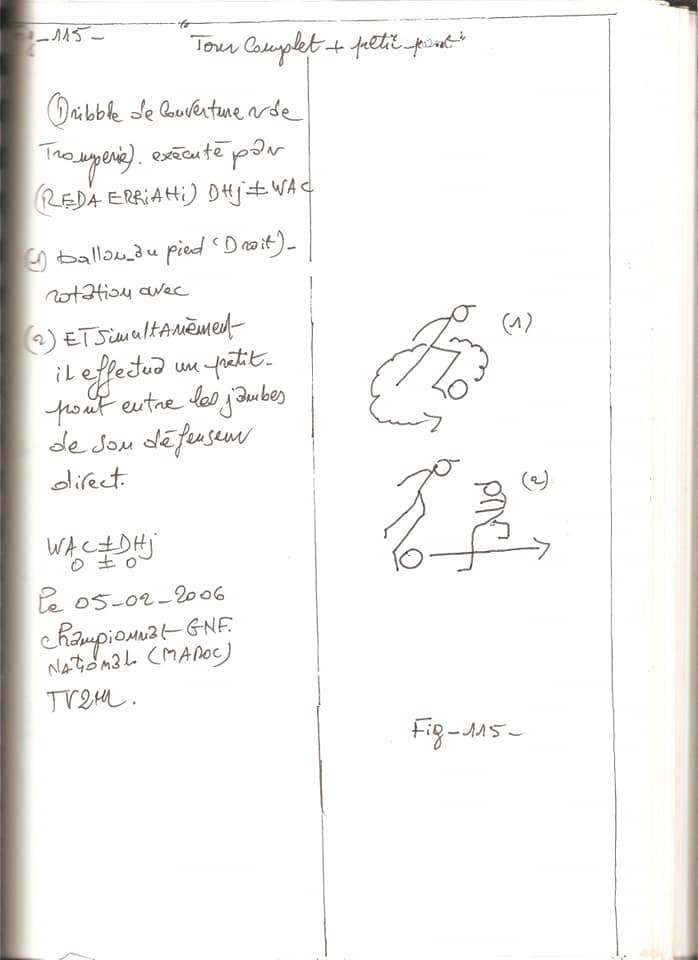 -115-
Tour Complet + petit pont
Dribble de Couverture de
Tromperie). exécuté par
(REDA ERRiAHi) DHj ± WAC
(1) ballon au pied (Droit)-
rotation avec
(2) ET Simultanément
il effectua un petit-
pont entre les jambes
de son défenseur
direct.
WAC ± DHj
0 ± 0
Le 05-02-2006
Championnat GNF.
National (MAROC)
TV2M.
(1)
(2)
Fig-115-